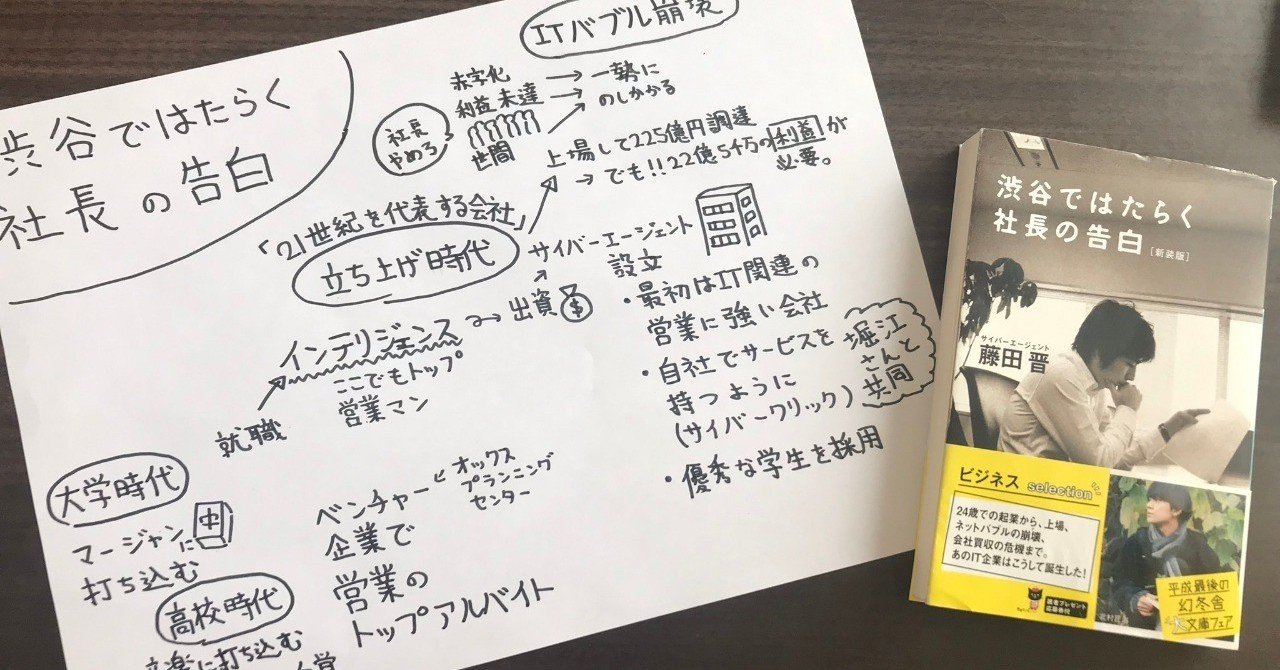 渋谷ではたらく
社長の告白
ITバブル崩壊
赤字化
利益未達
世間
社長
やめろ
一勢に
のしかかる
上場して225億円調達
→でも!!22億5千万の利益が
必要。
「21世紀を代表する会社」
立ち上げ時代
サイバーエージェント
設立
・最初はIT関連の
営業に強い会社
・自社でサービスを
持つように
(サイバークリック)
堀江
さんと
共同
・優秀な学生を採用
インテリジェンス
出資
$
ここでもトップ
営業マン
就職
大学時代
マージャンに
打ち込む
中
ベンチャー
企業で
営業の
トップアルバイト
オックス
プランニング
センター
高校時代
楽に打ち込む
渋谷ではたらく
社長の告白
[新装版]
サイバーエージェント
藤田晋
ビジネス selection
24歳での起業から、上場、
ネットバブルの崩壊、
会社買収の危機まで。
あのIT企業はこうして誕生した!
読者プレゼント
平成最後の
幻冬舎
文庫フェア